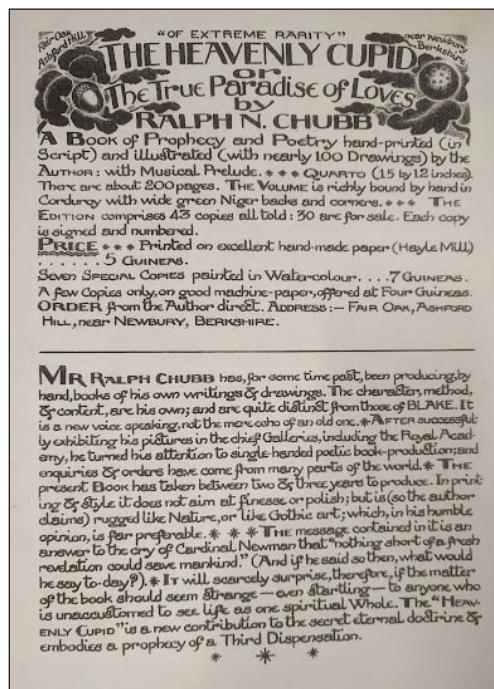 "OF EXTREME RARITY"
Fair Oak
Ashford Hill,
near Newbury
Berkshire
THE HEAVENLY CUPID
or
The True Paradise of Loves
by
RALPH N. CHUBB
A BOOK of Prophecy and Poetry hand-printed (in
Script) and illustrated (with nearly 100 Drawings) by the
AUTHOR: with Musical Prelude. * * * QUARTO (15 by 12 inches).
There are about 200 pages. THE VOLUME is richly bound by hand in
Corduroy with wide green Niger backs and corners. * * * THE
EDITION comprises 43 copies all told: 30 are for sale. Each copy
is signed and numbered.
PRICE * * * Printed on excellent hand-made paper (Hayle Mill)
. . . . . . 5 GUINEAS.
Seven SPECIAL COPIES painted in Watercolour. . . . 7 GUINEAS.
A few Copies only, on good machine-paper, offered at Four Guineas.
ORDER from the Author direct. ADDRESS:— FAIR OAK, ASHFORD
HILL, near NEWBURY, BERKSHIRE.
MR RALPH CHUBB has, for some time past, been producing, by
hand, books of his own writings & drawings. The character, method,
& content, are his own; and are quite distinct from those of BLAKE. It
is a new voice speaking, not the mere echo of an old one. * AFTER successful-
ly exhibiting his pictures in the chief Galleries, including the Royal Acad-
emy, he turned his attention to single-handed poetic book-production; and
enquiries & orders have come from many parts of the world. * THE
present Book has taken between two & three years to produce. In print-
ing & style it does not aim at finesse or polish; but is (so the author
claims) rugged like Nature, or like Gothic art; which, in his humble
opinion, is far preferable. * * * THE message contained in it is an
answer to the cry of Cardinal Newman that "nothing short of a fresh
revelation could save mankind." (And if he said so then, what would
he say to-day?). * IT will scarcely surprise, therefore, if the matter
of the book should seem strange — even startling — to anyone who
is unaccustomed to see life as one spiritual Whole. The "HEAV-
ENLY CUPID" is a new contribution to the secret eternal doctrine &
embodies a prophecy of a Third Dispensation.
* * *